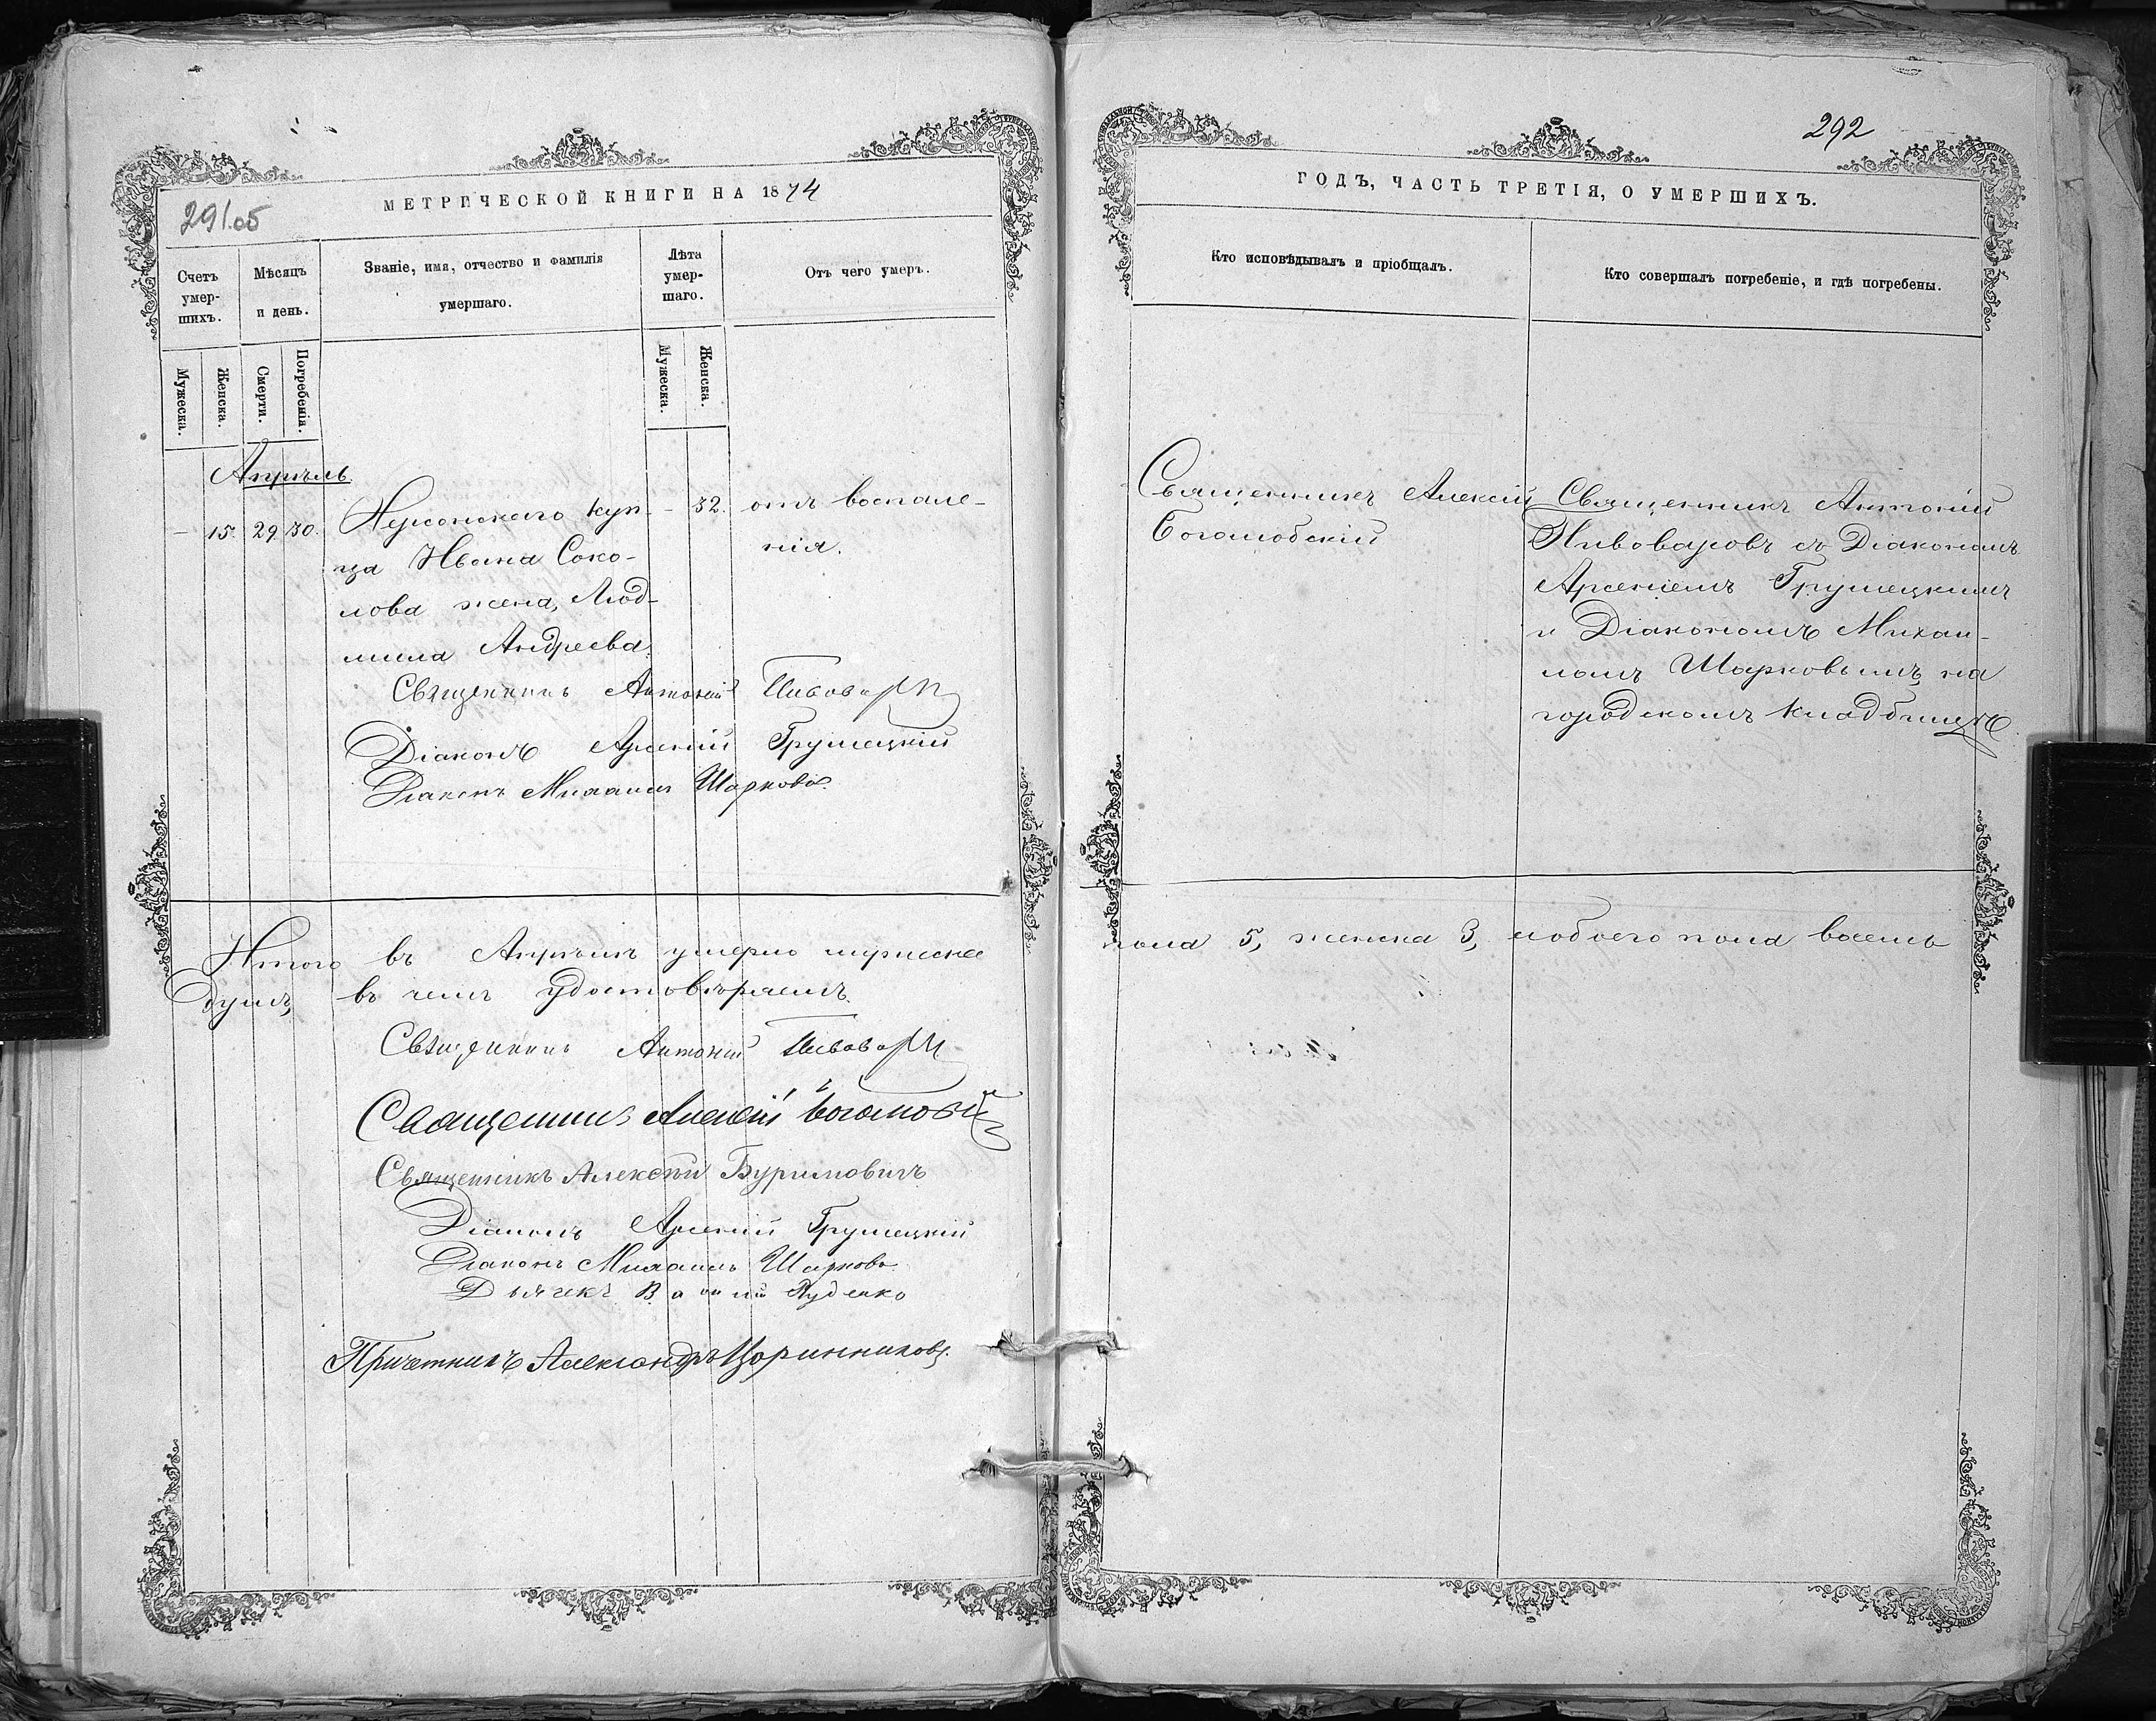 292
291об
МЕТРИЧЕСКОЙ КНИГИ НА 1874
ГОДЪ, ЧАСТЬ ТРЕТІЯ, О УМЕРШИХЪ.
Счетъ умер-шихъ.
Мѣсяцъ и день.
Званіе, имя, отчество и фамилія
умершаго.
Лѣта умер-шаго.
Отъ чего умеръ.
Кто исповѣдывалъ и пріобщалъ.
Кто совершалъ погребеніе, и гдѣ погребены.
Мужеска.
Женска.
Смерти.
Погребенія.
Мужеска.
Женска.
Апрѣль
— 15. 29. 30.
Херсонскаго куп-
ца Ивана Соко-
лова жена, Люд-
мила Андреева.
— 32.
отъ воспале-
нія.
Священникъ Алексій
Боголюбскій
Священникъ Антоній
Пивоваровъ съ Діакономъ
Арсеніемъ Грушецкимъ
и Діакономъ Михаи-
ломъ Шарковымъ на
городскомъ кладбищѣ.
Священникъ Антоній
Діаконъ Арсеній Грушецкій
Діаконъ Михаилъ Шарковъ.
Итого въ Апрѣлѣ умерло мужеска
пола 5, женска 3, обоего пола восемь
душъ, въ чемъ удостовѣряемъ.
Священникъ Антоній
Священникъ Алексій
Священникъ Алексѣй Буримовичъ
Діаконъ Арсеній Грушецкій
Діаконъ Михаилъ Шарковъ
Дьячекъ Руденко
Причетникъ Александръ